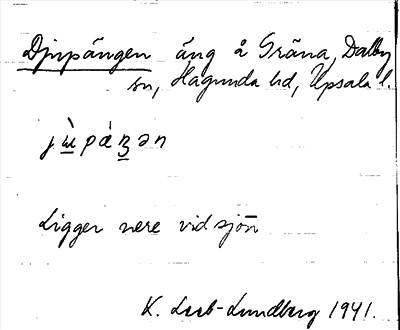 Djupängen äng å Gräna, Dalby
sn, Hagunda hd, Upsala l.
Ligger nere vid sjön
K. Leeb-Lundberg 1941.